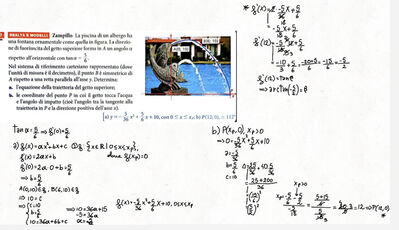 REALTÀ E MODELLI Zampillo La piscina di un albergo ha
una fontana ornamentale come quella in figura. La direzio-
ne di fuoriuscita del getto superiore forma in A un angolo α
rispetto all'orizzontale con tan α = 5/6.
Nel sistema di riferimento cartesiano rappresentato (dove
l'unità di misura è il decimetro), il punto B è simmetrico di
A rispetto a una retta parallela all'asse y. Determina:
a. l'equazione della traiettoria del getto superiore;
b. le coordinate del punto P in cui il getto tocca l'acqua
e l'angolo di impatto (cioè l'angolo tra la tangente alla
traiettoria in P e la direzione positiva dell'asse x).
[a) y = -5/36 x² + 5/6 x + 10, con 0 ≤ x ≤ x_P; b) P(12; 0), ≃ 112°]
tan α = 5/6 ⇒ f'(0) = 5/6
a) f(x) = ax² + bx + c
f'(x) = 2ax + b
f'(0) = 2a·0 + b = 5/6
⇒ b = 5/6
A(0,10) ∈ f, B(6,10) ∈ f
⇒ 10 = c
c = 10
b = 5/6
10 = 36a + 6b + c
⇒ 10 = 36a + 15
-5 = 36a
f(x) = -5/36 x² + 5/6 x + 10, 0 ≤ x ≤ x_P
b) P(x_P, 0), x_P > 0
⇒ 0 = -5/36 x² + 5/6 x + 10
a = -5/36
b = 5/6
c = 10
= 25 + 200 / 36
⇒ P(12, 0)
f'(12) =
= -10/3 + 5/6 = -20+5/6 = -15/6 = -5/2
f'(12) = tan θ
⇒ arctan(-5/2) = θ